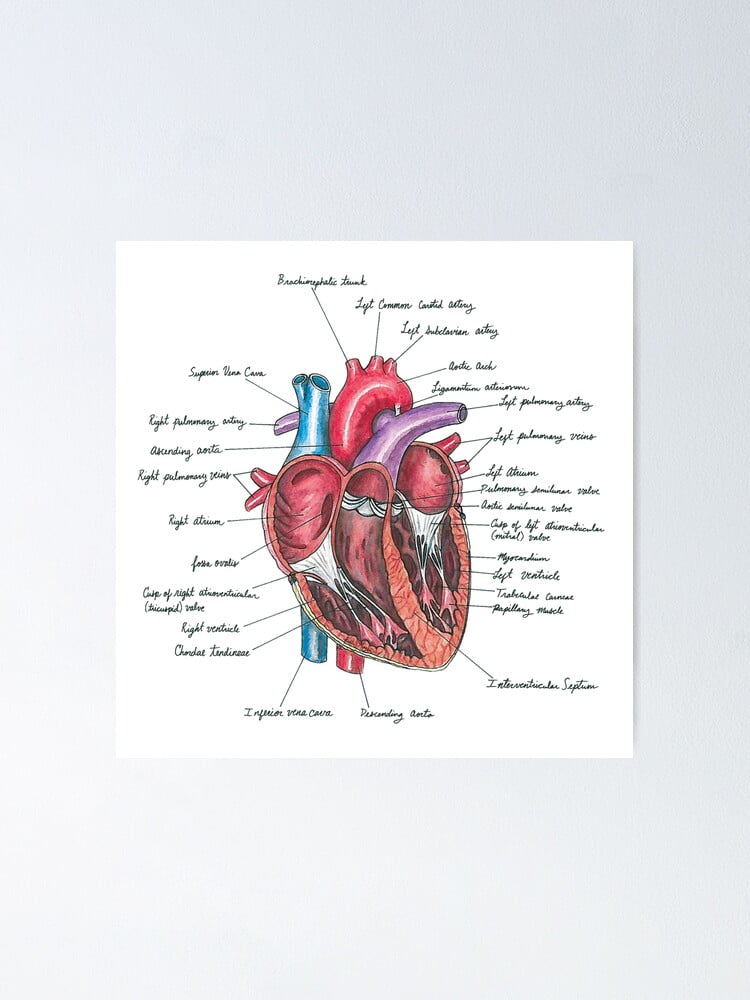 Brachiocephalic trunk
Left Common Carotid artery
Left subclavian artery
Aortic Arch
Superior Vena Cava
Ligamentum arteriosum
Left pulmonary artery
Right pulmonary artery
Left pulmonary veins
Ascending aorta
Right pulmonary veins
Left Atrium
Pulmonary semilunar valve
Aortic semilunar valve
Right atrium
Cusp of left atrioventricular
(mitral) valve
Myocardium
fossa ovalis
Left ventricle
Cusp of right atrioventricular
(tricuspid) valve
Trabeculae carneae
Papillary muscle
Right ventricle
Chordae tendineae
Interventricular Septum
Inferior vena cava
Descending Aorta